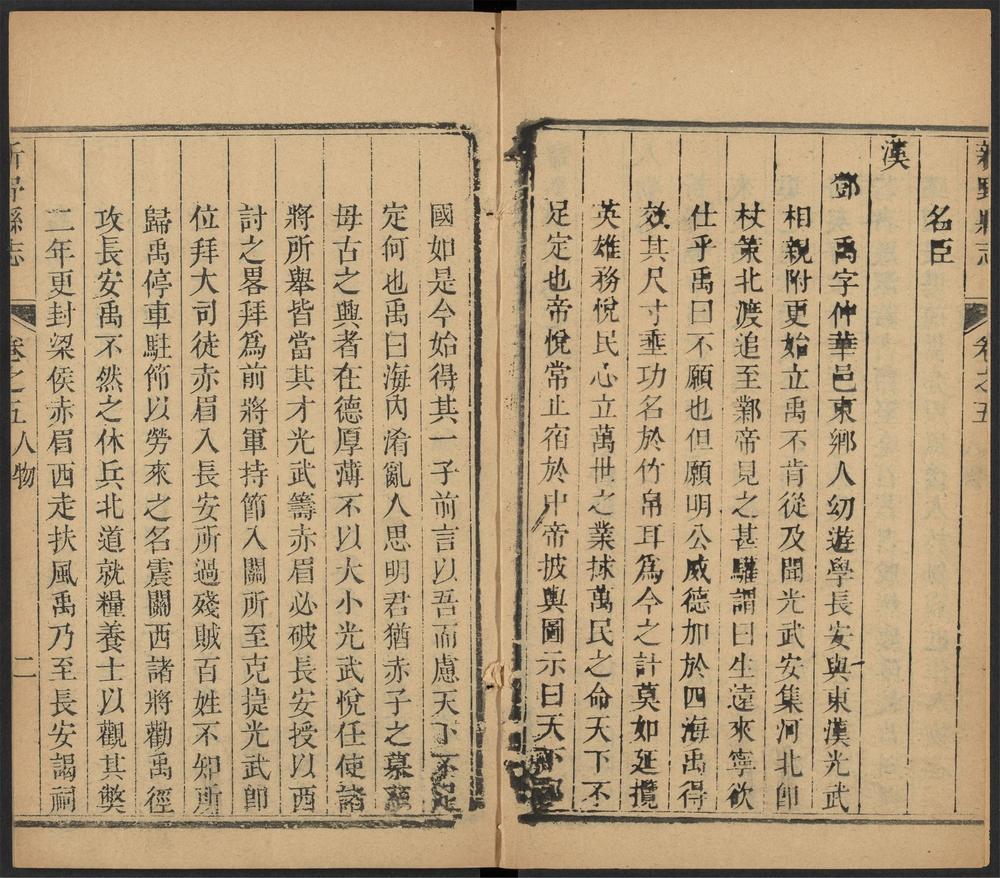 新野縣志
卷之五
名臣
漢
鄧禹字仲華邑東鄉人幼遊學長安與東漢光武
相親附更始立禹不肯從及聞光武安集河北卽
杖策北渡追至鄴帝見之甚驩謂曰生遠來寧欲
仕乎禹曰不願也但願明公威德加於四海禹得
效其尺寸垂功名於竹帛耳爲今之計莫如延攬
英雄務悅民心立萬世之業捄萬民之命天下不
足定也帝悅常止宿於中帝披輿圖示曰天下郡
國如是今始得其一子前言以吾而慮天下不足
定何也禹曰海內淆亂人思明君猶赤子之慕慈
母古之興者在德厚薄不以大小光武悅任使諸
將所舉皆當其才光武籌赤眉必破長安授以西
討之畧拜爲前將軍持節入關所至克捷光武卽
位拜大司徒赤眉入長安所過殘賊百姓不知所
歸禹停車駐節以勞來之名震關西諸將勸禹徑
攻長安禹不然之休兵北道就糧養士以觀其獘
二年更封梁侯赤眉西走扶風禹乃至長安謁祠
新野縣志
卷之五人物
二